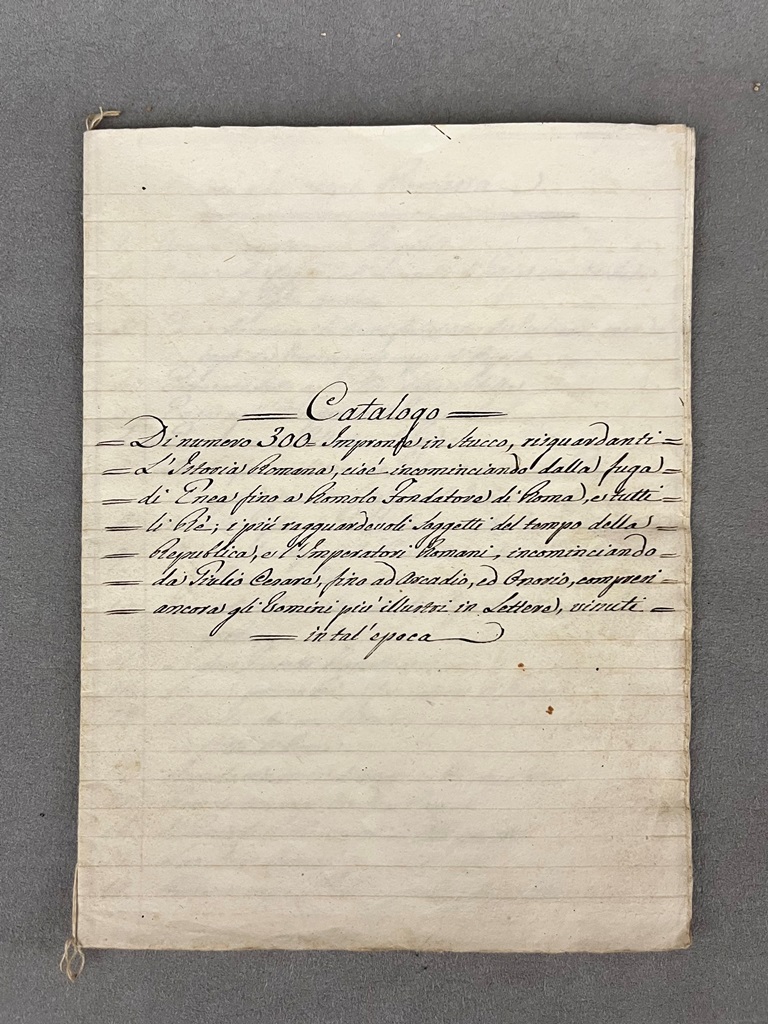 = Catalogo =
= Di numero 300= Impronte in Stucco, risguardanti =
= L'Istoria Romana, cioè incominciando dalla fuga =
= di Enea fino a Romolo Fondatore di Roma, e tutti =
= li Rè; i più ragguardevoli Soggetti del tempo della =
= Republica, e l'Imperatori Romani, incominciando =
= da Giulio Cesare, fino ad Arcadio, ed Onorio, compresi =
= ancora gli Uomini più illustri in Lettere, vinuti =
= in tal' epoca